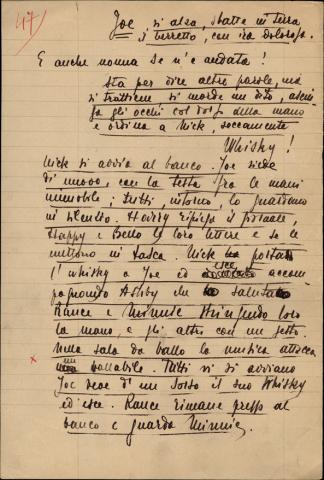 47)
Joe si alza, sbatte in terra
il berretto, con ira dolorosa.
E anche nonna se n'è andata!
Sta per dire altre parole, ma
si trattiene si morde un dito, asciu-
ga gli occhi col dorso della mano
e ordina a Nick, seccamente
Whisky!
Nick si avvia al banco. Joe siede
di nuovo, con la testa fra le mani
immobile; tutti, intorno, lo guardano
in silenzio. Harry ripiega il giornale,
Happy e Bello le loro lettere e se le
mettono in tasca. Nick porta
l'whisky a Joe ed esce accom-
pagnando Ashby che saluta
Rance e Minnie stringendo loro
la mano, e gli altri con un gesto.
Nella sala da ballo la musica attacca
x un ballabile. Tutti vi si avviano
Joe beve d'un sorso il suo Whisky
ed esce. Rance rimane presso al
banco e guarda Minnie.